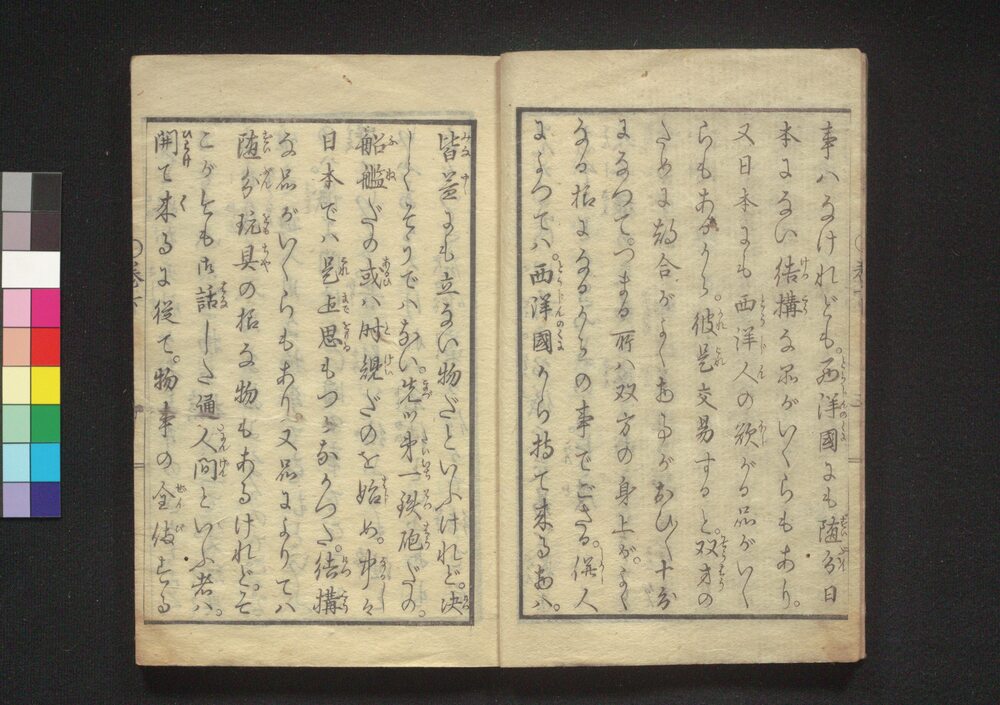 事ハなけれども。西洋國にも随分日
本にない結構な品がいくらもあり。
又日本にも西洋人の欲がる品がいく
らもあるから。彼是交易すると。双方の
ために都合がよくあるがおひ〳〵十分
になつて。つまる所ハ双方の身上が。よく
なる括になるからの事でござる。併人
によつてハ。西洋國から持て来るあハ。
皆益にも立ない物だといふけれど。决
してそうでハない。先ツ第一鉄砲だの。
船艦だの或ハ時規だのを始め。中々
日本でハ是迄思もつかなかつた。結構
な品がいくらもあり。又品によりてハ
随分玩具の括な物もあるけれど。そ
こがそも御話しした通人間といふ者ハ。
開て来るに従て。物事の全備する